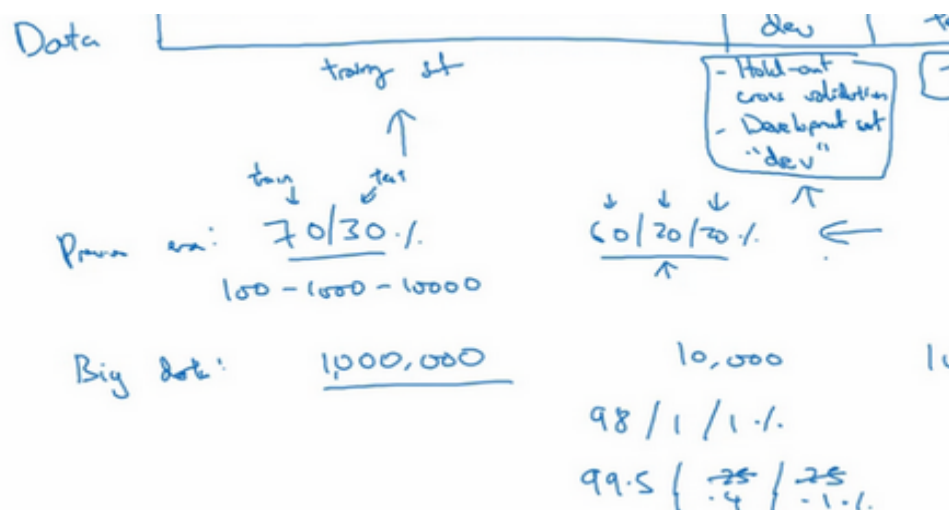 Data
dev
training set
- Hold-out
cross validation
- Development set
"dev"
train test
Previous era: 70/30 % 60/20/20 %
100 - 1000 - 10000
Big data: 1,000,000 10,000
98 / 1 / 1 %
99.5 / .25 / .25
.4 .1 %